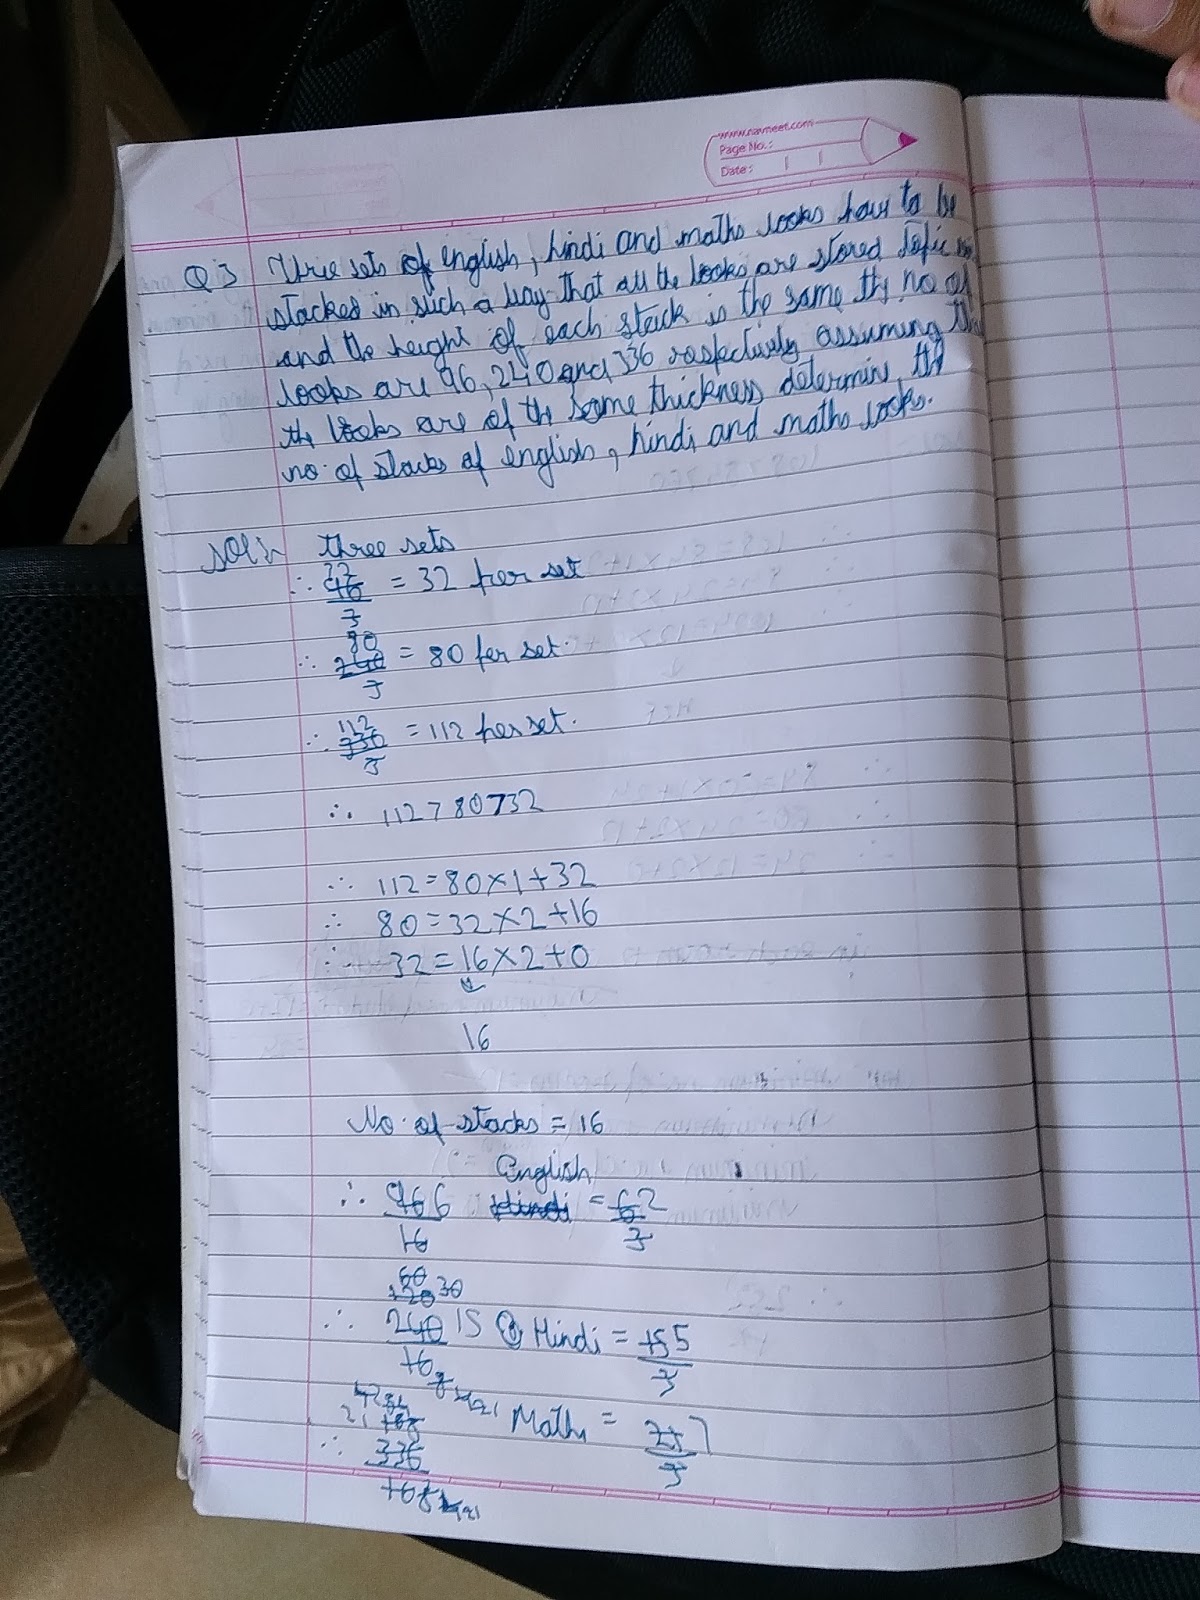 www.navneet.com
Page No.:
Date:
Q 3 Three sets of english, hindi and maths books have to be
stacked in such a way that all the books are stored topic
and the height of each stack is the same the no of
books are 96, 240 and 336 respectively assuming
the books are of the same thickness determine, the
no. of stacks of english, hindi and maths books.
Soln three sets
32
∴ 96 = 32 per set
3
80
∴ 240 = 80 per set.
3
112
∴ 336 = 112 per set.
3
∴ 112 > 80 > 32
∴ 112 = 80 × 1 + 32
∴ 80 = 32 × 2 + 16
∴ 32 = 16 × 2 + 0
16
No. of stacks = 16
English
∴ 96 6 Hindi = 6 2
16 3
60
120 30
∴ 240 15 Hindi = 15 5
16 8 3
42 84
21 168 Maths = 21 7
∴ 336 3
16 8